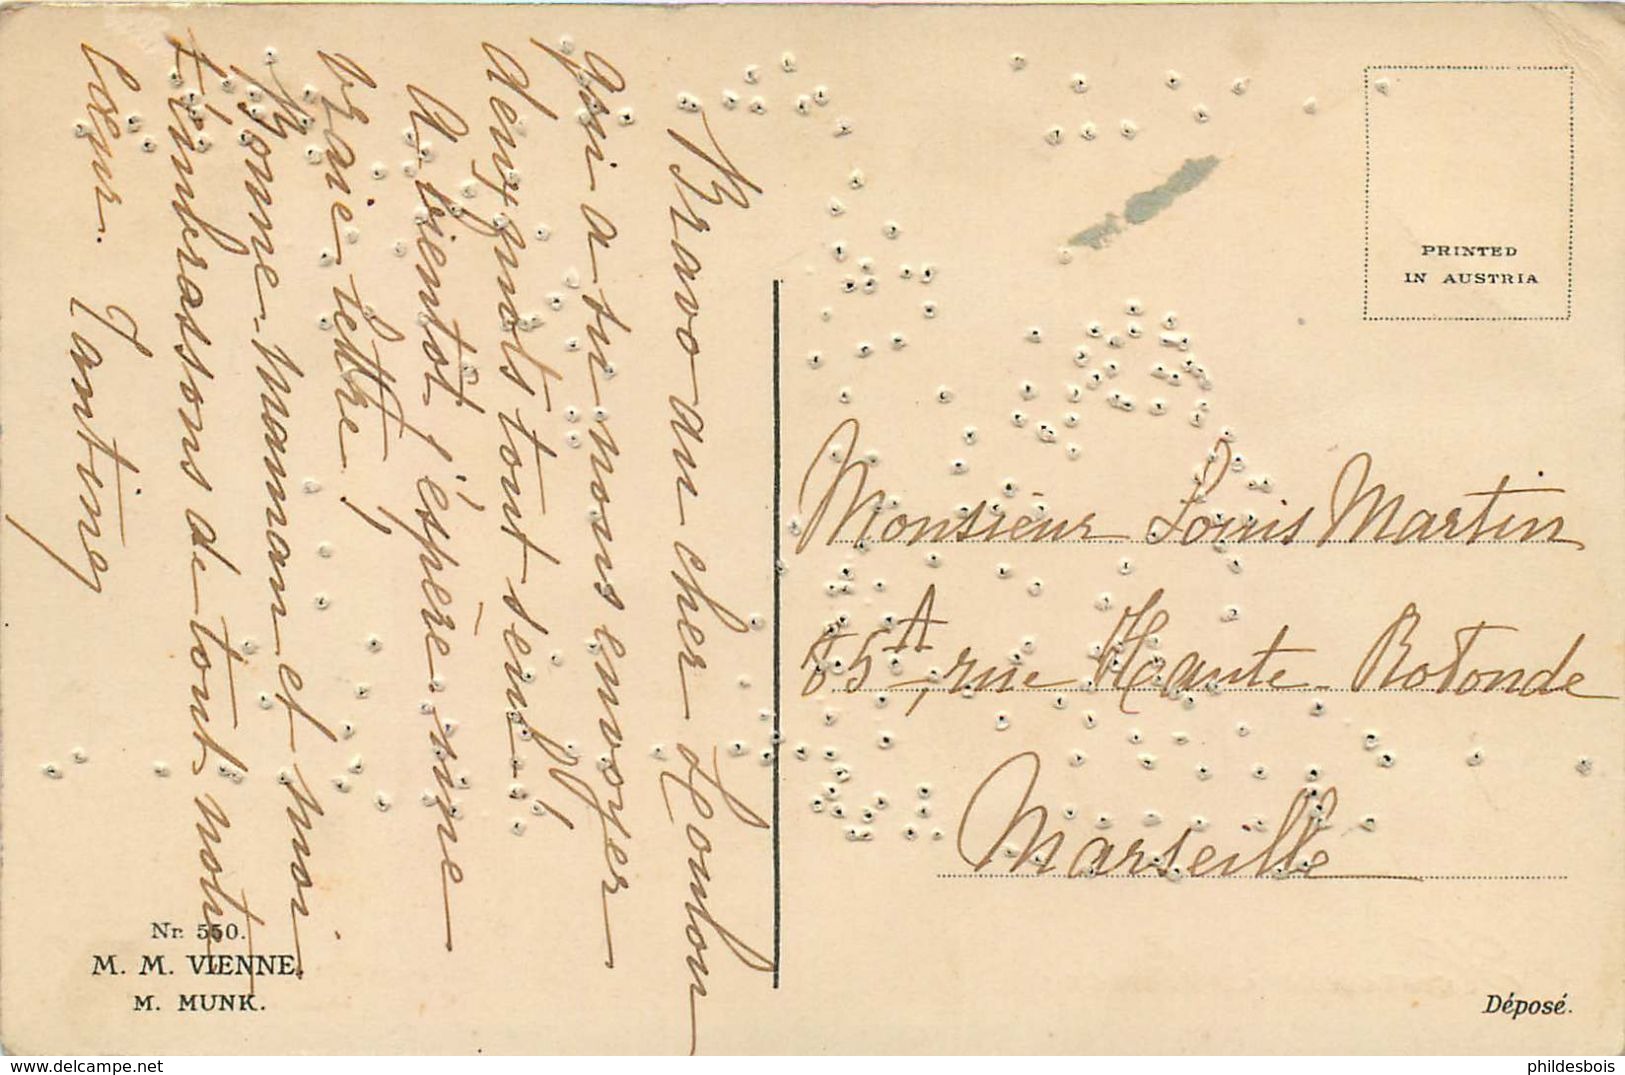 Bravo au cher Loulou
qui a su nous envoyer
deux mots tout seul !
A bientôt j'éspère une
vraie lettre !
Bonne-Maman et moi
t'embrassons de tout notre
coeur. Tantine
Monsieur Louis Martin
85A, rue Haute-Rotonde
Marseille
PRINTED
IN AUSTRIA
Nr. 550.
M. M. VIENNE.
M. MUNK.
Déposé.
phildesbois
delcampe.net